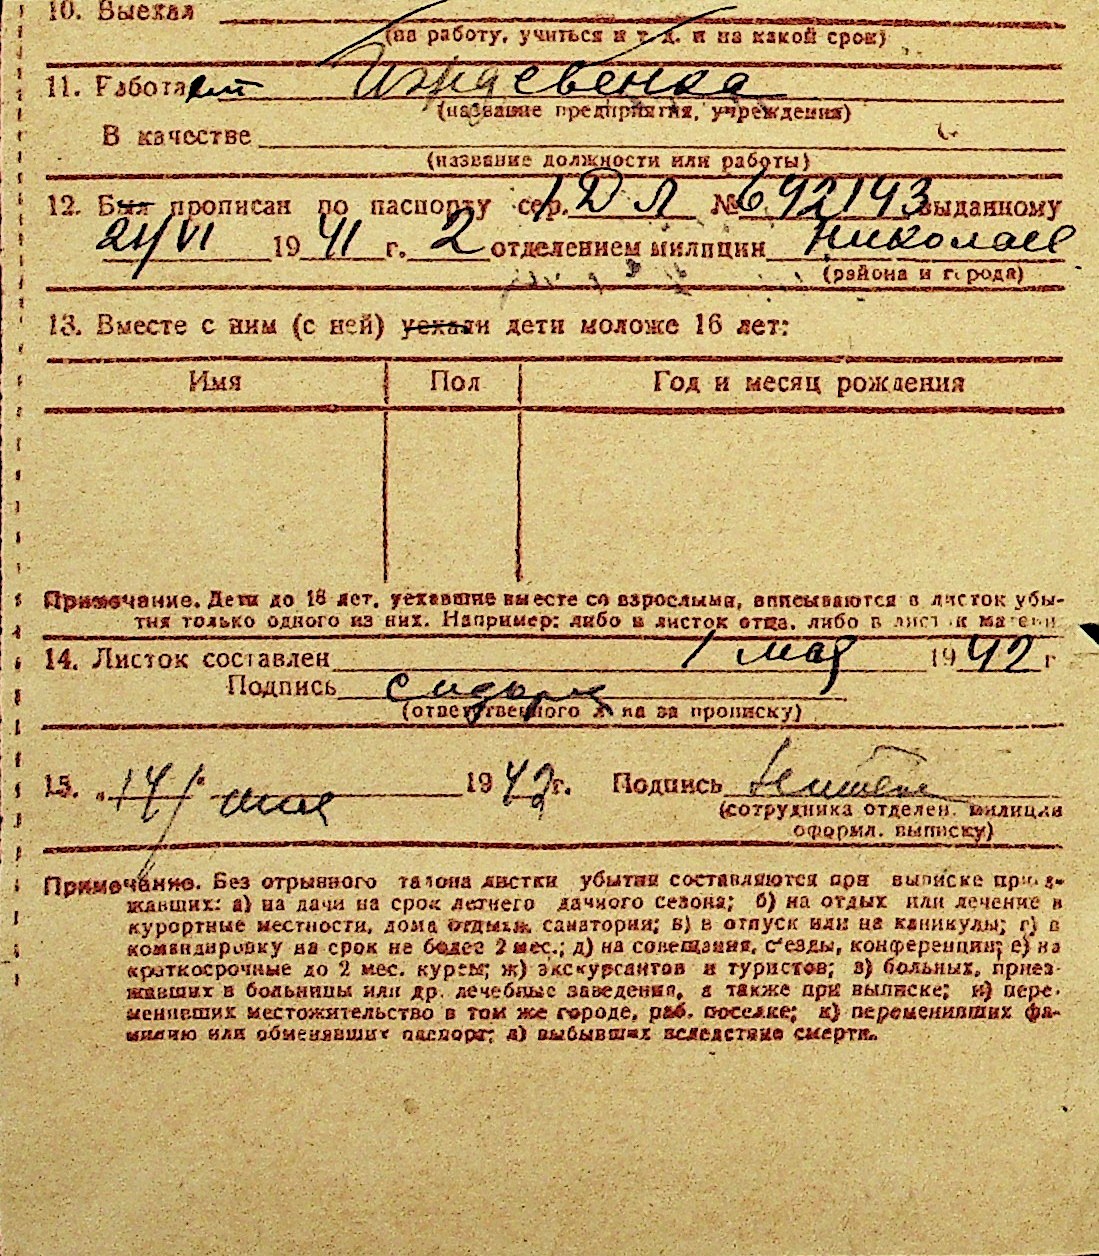 10. Выехал
(на работу, учиться и т. д. и на какой срок)
11. Работает Иждевенка
(название предприятия, учреждения)
В качестве
(название должности или работы)
12. Был прописан по паспорту сер. 1 ДЛ № 692143 выданному
24/VI 1941 г. 2 отделением милиции Николаев
(района и города)
13. Вместе с ним (с ней) уехали дети моложе 16 лет:
Имя Пол Год и месяц рождения
Примечание. Дети до 18 лет, уехавшие вместе со взрослыми, вписываются в листок убы-
тия только одного из них. Например: либо в листок отца, либо в листок матери
14. Листок составлен 1 мая 1942 г
Подпись
(ответственного лица за прописку)
15. „14" мая 1942 г. Подпись
(сотрудника отделен. милиции
оформл. выписку)
Примечание. Без отрывного талона листки убытия составляются при выписке приез-
жавших: а) на дачи на срок летнего дачного сезона; б) на отдых или лечение в
курортные местности, дома отдыха, санатории; в) в отпуск или на каникулы; г) в
командировку на срок не более 2 мес.; д) на совещания, с'езды, конференции; е) на
краткосрочные до 2 мес. курсы; ж) экскурсантов и туристов; з) больных, приез-
жавших в больницы или др. лечебные заведения, а также при выписке; и) пере-
менивших местожительство в том же городе, раб. поселке; к) переменивших фа-
милию или обменявших паспорт; л) выбывших вследствие смерти.